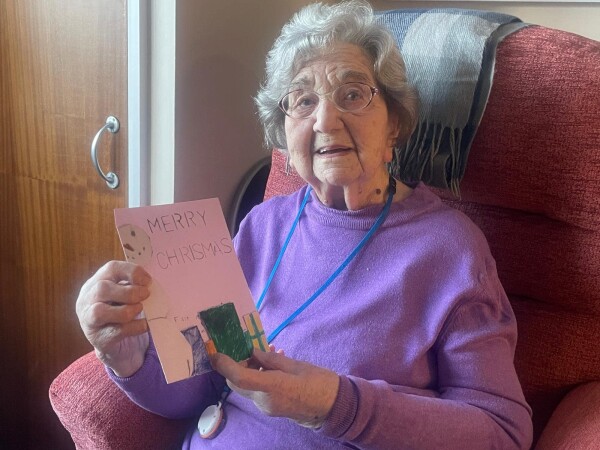 MERRY
CHRISMAS